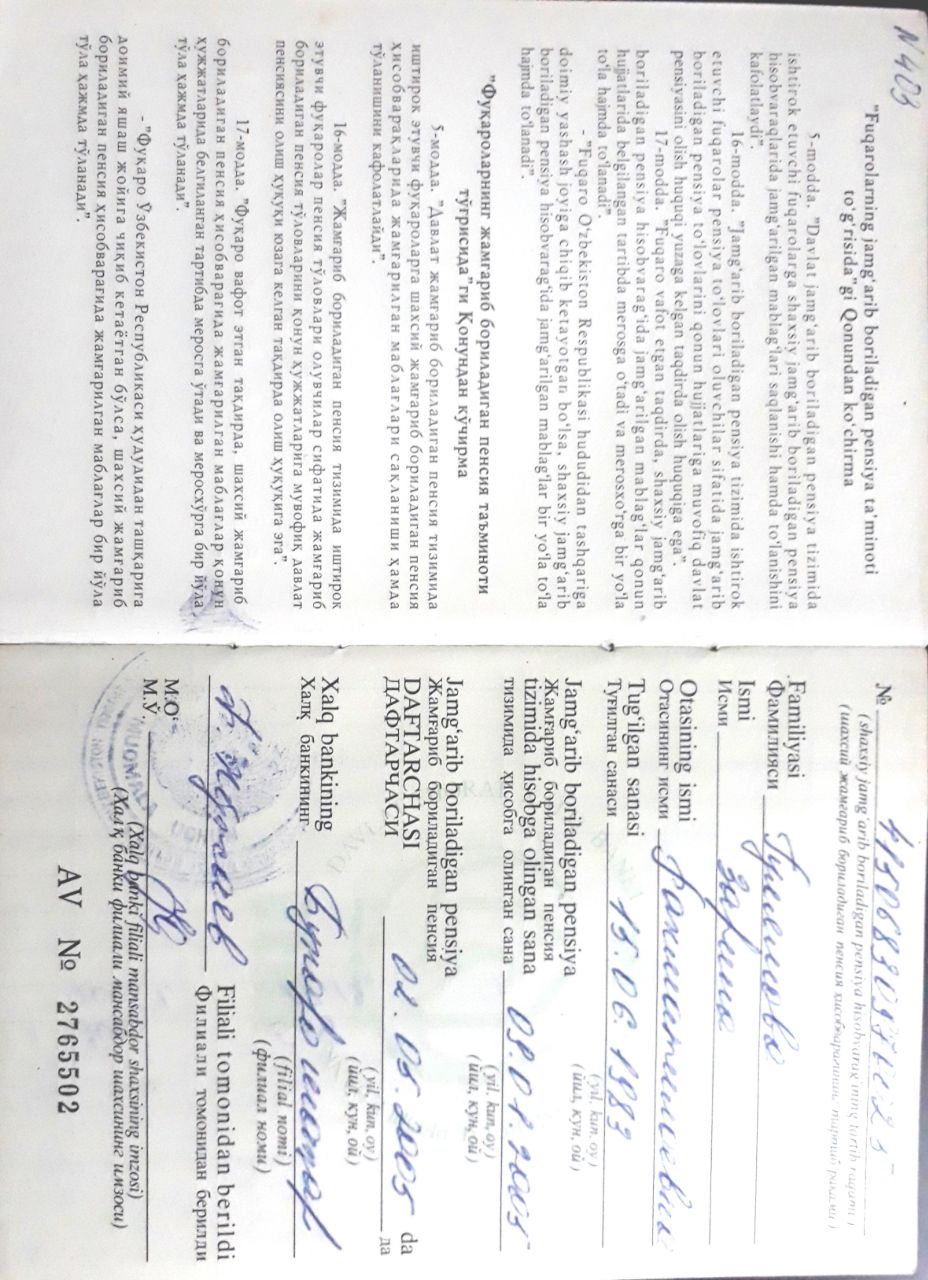 N 403
"Fuqarolarning jamg‘arib boriladigan pensiya ta’minoti
to‘g‘risida"gi Qonundan ko‘chirma
5-modda. "Davlat jamg‘arib boriladigan pensiya tizimida
ishtirok etuvchi fuqarolarga shaxsiy jamg‘arib boriladigan pensiya
hisobvaraqlarida jamg‘arilgan mablag‘lari saqlanishi hamda to‘lanishini
kafolatlaydi".
16-modda. "Jamg‘arib boriladigan pensiya tizimida ishtirok
etuvchi fuqarolar pensiya to‘lovlari oluvchilar sifatida jamg‘arib
boriladigan pensiya to‘lovlarini qonun hujjatlariga muvofiq davlat
pensiyasini olish huquqi yuzaga kelgan taqdirda olish huquqiga ega".
17-modda. "Fuqaro vafot etgan taqdirda, shaxsiy jamg‘arib
boriladigan pensiya hisobvarag‘ida jamg‘arilgan mablag‘lar qonun
hujjatlarida belgilangan tartibda merosga o‘tadi va merosxo‘rga bir yo‘la
to‘la hajmda to‘lanadi".
- "Fuqaro O‘zbekiston Respublikasi hududidan tashqariga
doimiy yashash joyiga chiqib ketayotgan bo‘lsa, shaxsiy jamg‘arib
boriladigan pensiya hisobvarag‘ida jamg‘arilgan mablag‘lar bir yo‘la to‘la
hajmda to‘lanadi".
"Фуқароларнинг жамғариб бориладиган пенсия таъминоти
тўғрисида"ги Қонундан кўчирма
5-модда. "Давлат жамғариб бориладиган пенсия тизимида
иштирок этувчи фуқароларга шахсий жамғариб бориладиган пенсия
ҳисобварақларида жамғарилган маблағлари сақланиши ҳамда
тўланишини кафолатлайди".
16-модда. "Жамғариб бориладиган пенсия тизимида иштирок
этувчи фуқаролар пенсия тўловлари олувчилар сифатида жамғариб
бориладиган пенсия тўловларини қонун ҳужжатларига мувофиқ давлат
пенсиясини олиш ҳуқуқи юзага келган тақдирда олиш ҳуқуқига эга".
17-модда. "Фуқаро вафот этган тақдирда, шахсий жамғариб
бориладиган пенсия ҳисобварағида жамғарилган маблағлар қонун
ҳужжатларида белгиланган тартибда меросга ўтади ва меросхўрга бир йўла
тўла ҳажмда тўланади".
- "Фуқаро Ўзбекистон Республикаси ҳудудидан ташқарига
доимий яшаш жойига чиқиб кетаётган бўлса, шахсий жамғариб
бориладиган пенсия ҳисобварағида жамғарилган маблағлар бир йўла
тўла ҳажмда тўланади".
№
(shaxsiy jamg‘arib boriladigan pensiya hisobvarag‘ining tartib raqami)
(шахсий жамғариб бориладиган пенсия ҳисобварағининг тартиб рақами)
Familiyasi
Фамилияси
Ismi
Исми Зарина
Otasining ismi
Отасининг исми
Tug‘ilgan sanasi
Туғилган санаси 15.06.1983
(yil, kun, oy)
(йил, кун, ой)
Jamg‘arib boriladigan pensiya
Жамғариб бориладиган пенсия
tizimida hisobga olingan sana
тизимида ҳисобга олинган сана 09.01.2005
(yil, kun, oy)
(йил, кун, ой)
Jamg‘arib boriladigan pensiya
Жамғариб бориладиган пенсия
DAFTARCHASI
ДАФТАРЧАСИ 02.05.2005 da
да
(yil, kun, oy)
(йил, кун, ой)
Xalq bankining
Халқ банкининг
(filial nomi)
(филиал номи)
Filiali tomonidan berildi
Филиали томонидан берилди
M.O‘.
М.Ў.
(Xalq banki filiali mansabdor shaxsining imzosi)
(Халқ банки филиали мансабдор шахсининг имзоси)
AV № 2765502